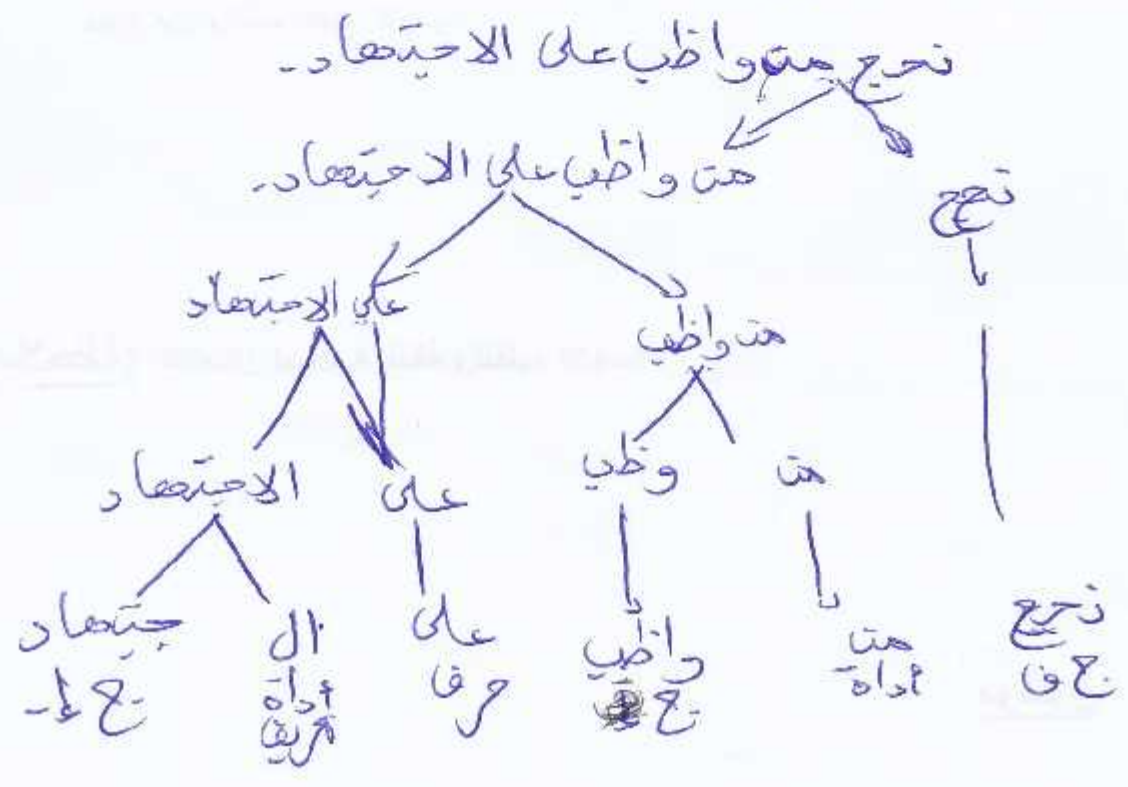 نجح من واظب على الاجتهاد.
من واظب على الاجتهاد.
نجح
على الاجتهاد
من واظب
الاجتهاد
على
وظب
من
جتهاد
ال
على
واظب
من
نجح
ج إ.
أداة
تعريف
حرف
ج
أداة
ج ف